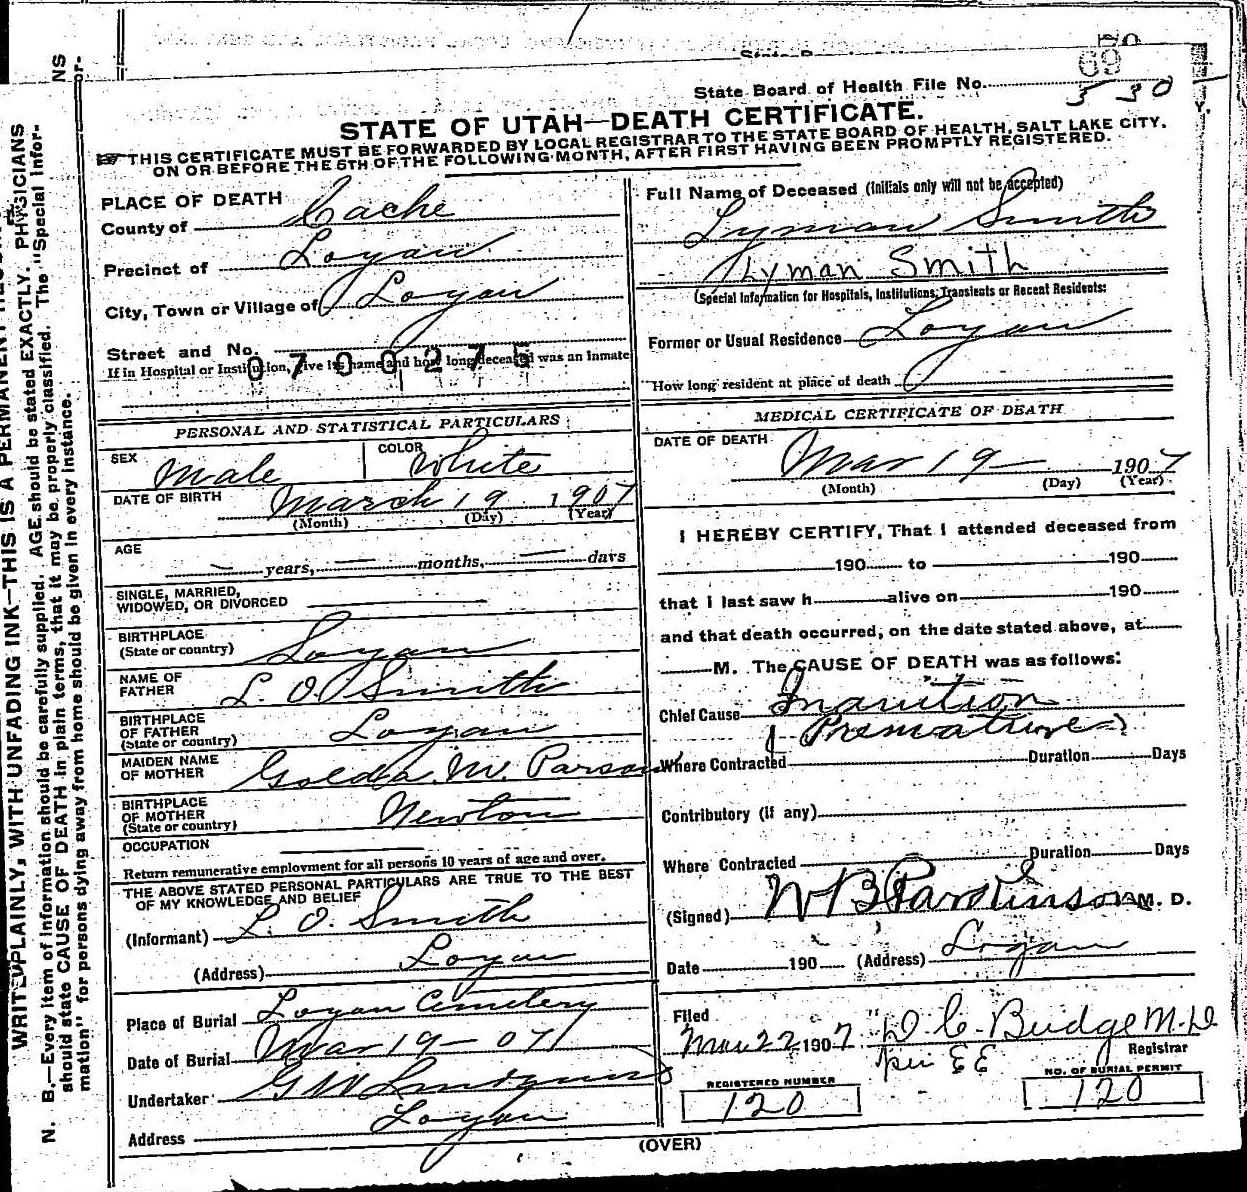 State Board of Health File No. 69
530
STATE OF UTAH—DEATH CERTIFICATE.
THIS CERTIFICATE MUST BE FORWARDED BY LOCAL REGISTRAR TO THE STATE BOARD OF HEALTH, SALT LAKE CITY,
ON OR BEFORE THE 5TH OF THE FOLLOWING MONTH, AFTER FIRST HAVING BEEN PROMPTLY REGISTERED.
PLACE OF DEATH
County of Cache
Precinct of Logan
City, Town or Village of Logan
Street and No.
0700275
If in Hospital or Institution, give its name and how long deceased was an inmate
PERSONAL AND STATISTICAL PARTICULARS
SEX Male COLOR White
DATE OF BIRTH March 19 1907
(Month) (Day) (Year)
AGE — years, — months, — days
SINGLE, MARRIED,
WIDOWED, OR DIVORCED
BIRTHPLACE
(State or country) Logan
NAME OF
FATHER L. O. Smith
BIRTHPLACE
OF FATHER
(State or country) Logan
MAIDEN NAME
OF MOTHER Golda M. Parsons
BIRTHPLACE
OF MOTHER
(State or country) Newton
OCCUPATION
Return remunerative employment for all persons 10 years of age and over.
THE ABOVE STATED PERSONAL PARTICULARS ARE TRUE TO THE BEST
OF MY KNOWLEDGE AND BELIEF
(Informant) L. O. Smith
(Address) Logan
Place of Burial Logan Cemetery
Date of Burial Mar 19 - 07
Undertaker G W Lindquist
Address Logan
Full Name of Deceased (Initials only will not be accepted)
Lyman Smith
Lyman Smith
(Special Information for Hospitals, Institutions, Transients or Recent Residents:
Former or Usual Residence Logan
How long resident at place of death
MEDICAL CERTIFICATE OF DEATH
DATE OF DEATH
Mar 19 — 1907
(Month) (Day) (Year)
I HEREBY CERTIFY, That I attended deceased from
190 to 190
that I last saw h alive on 190
and that death occurred, on the date stated above, at
M. The CAUSE OF DEATH was as follows:
Chief Cause Inanition
(Premature)
Where Contracted Duration Days
Contributory (if any)
Where Contracted Duration Days
(Signed) W B Parkinson M. D.
Date 190 (Address) Logan
Filed
Mar 22 1907 D C. Budge M.D
per EE Registrar
REGISTERED NUMBER
120
NO. OF BURIAL PERMIT
120
(OVER)
WRITE PLAINLY, WITH UNFADING INK—THIS IS A PERMANENT
N. B.—Every item of information should be carefully supplied. AGE should be stated EXACTLY. PHYSICIANS
should state CAUSE OF DEATH in plain terms, that it may be properly classified. The "Special Infor-
mation" for persons dying away from home should be given in every instance.